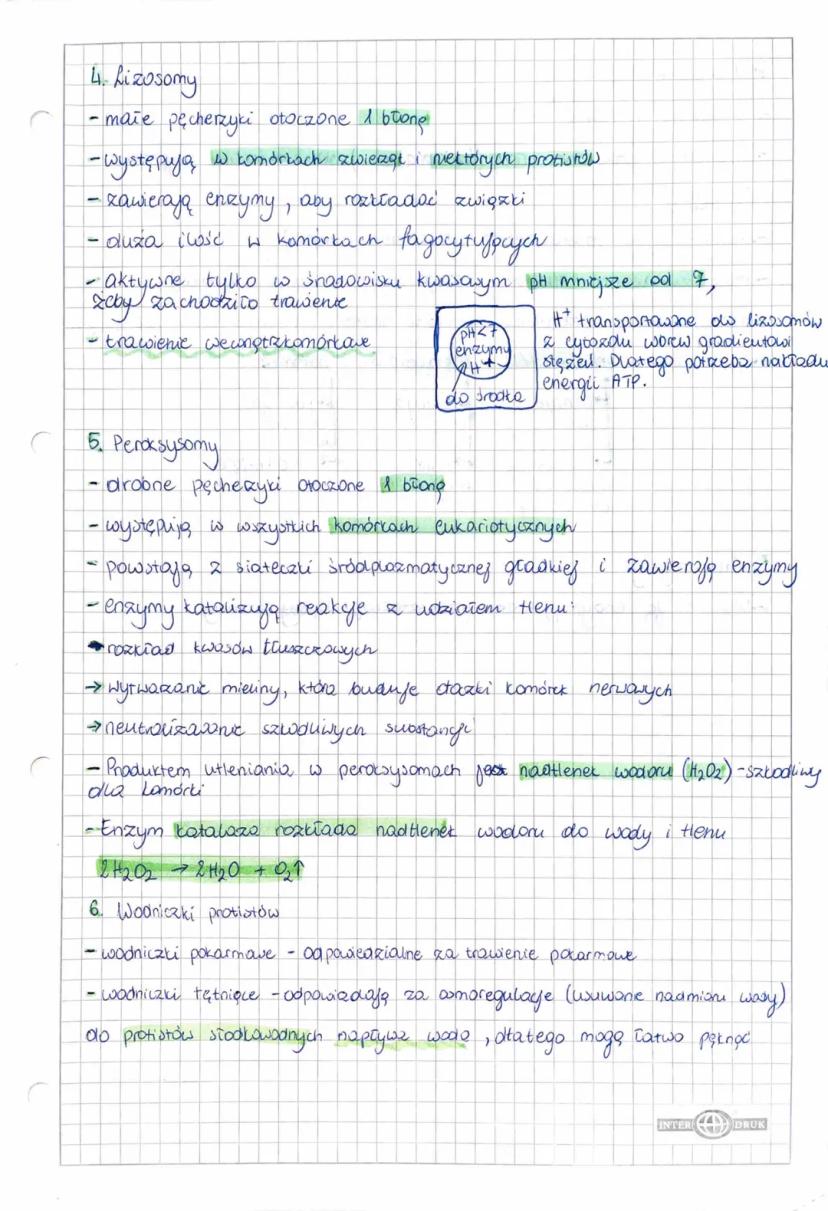 4. Lizosomy
- małe pęcherzyki otoczone 1 błoną
- występują w komórkach zwierząt i niektórych protistów
- zawierają enzymy, aby rozkładać związki
- duża ilość w komórkach fagocytujących
- aktywne tylko w środowisku kwasowym pH mniejsze od 7,
żeby zachodziło trawienie
- trawienie wewnątrzkomórkowe
pH<7
enzymy
2H+
do środka
H+ transportowane do lizosomów
z cytozolu wbrew gradientowi
stężeń. Dlatego potrzeba nakładu
energii ATP.
5. Peroksysomy
- drobne pęcherzyki otoczone 1 błoną
- występują w wszystkich komórkach eukariotycznych
- powstają z siateczki śródplazmatycznej gładkiej i zawierają enzymy
- enzymy katalizują reakcje z udziałem tlenu:
→ rozkład kwasów tłuszczowych
→ wytwarzanie mieliny, która buduje otoczki komórek nerwowych
→ neutralizowanie szkodliwych substancji
- Produktem utleniania w peroksysomach jest nadtlenek wodoru (H₂O₂) - szkodliwy
dla komórki
- Enzym katalaza rozkłada nadtlenek wodoru do wody i tlenu
2H₂O₂ → 2H₂O + O₂↑
6. Wodniczki protistów
- wodniczki pokarmowe - odpowiedzialne za trawienie pokarmowe
- wodniczki tętniące - odpowiadają za osmoregulację (usuwane nadmiaru wody)
do protistów słodkowodnych napływa woda, dlatego mogą łatwo pęknąć
INTER DRUK